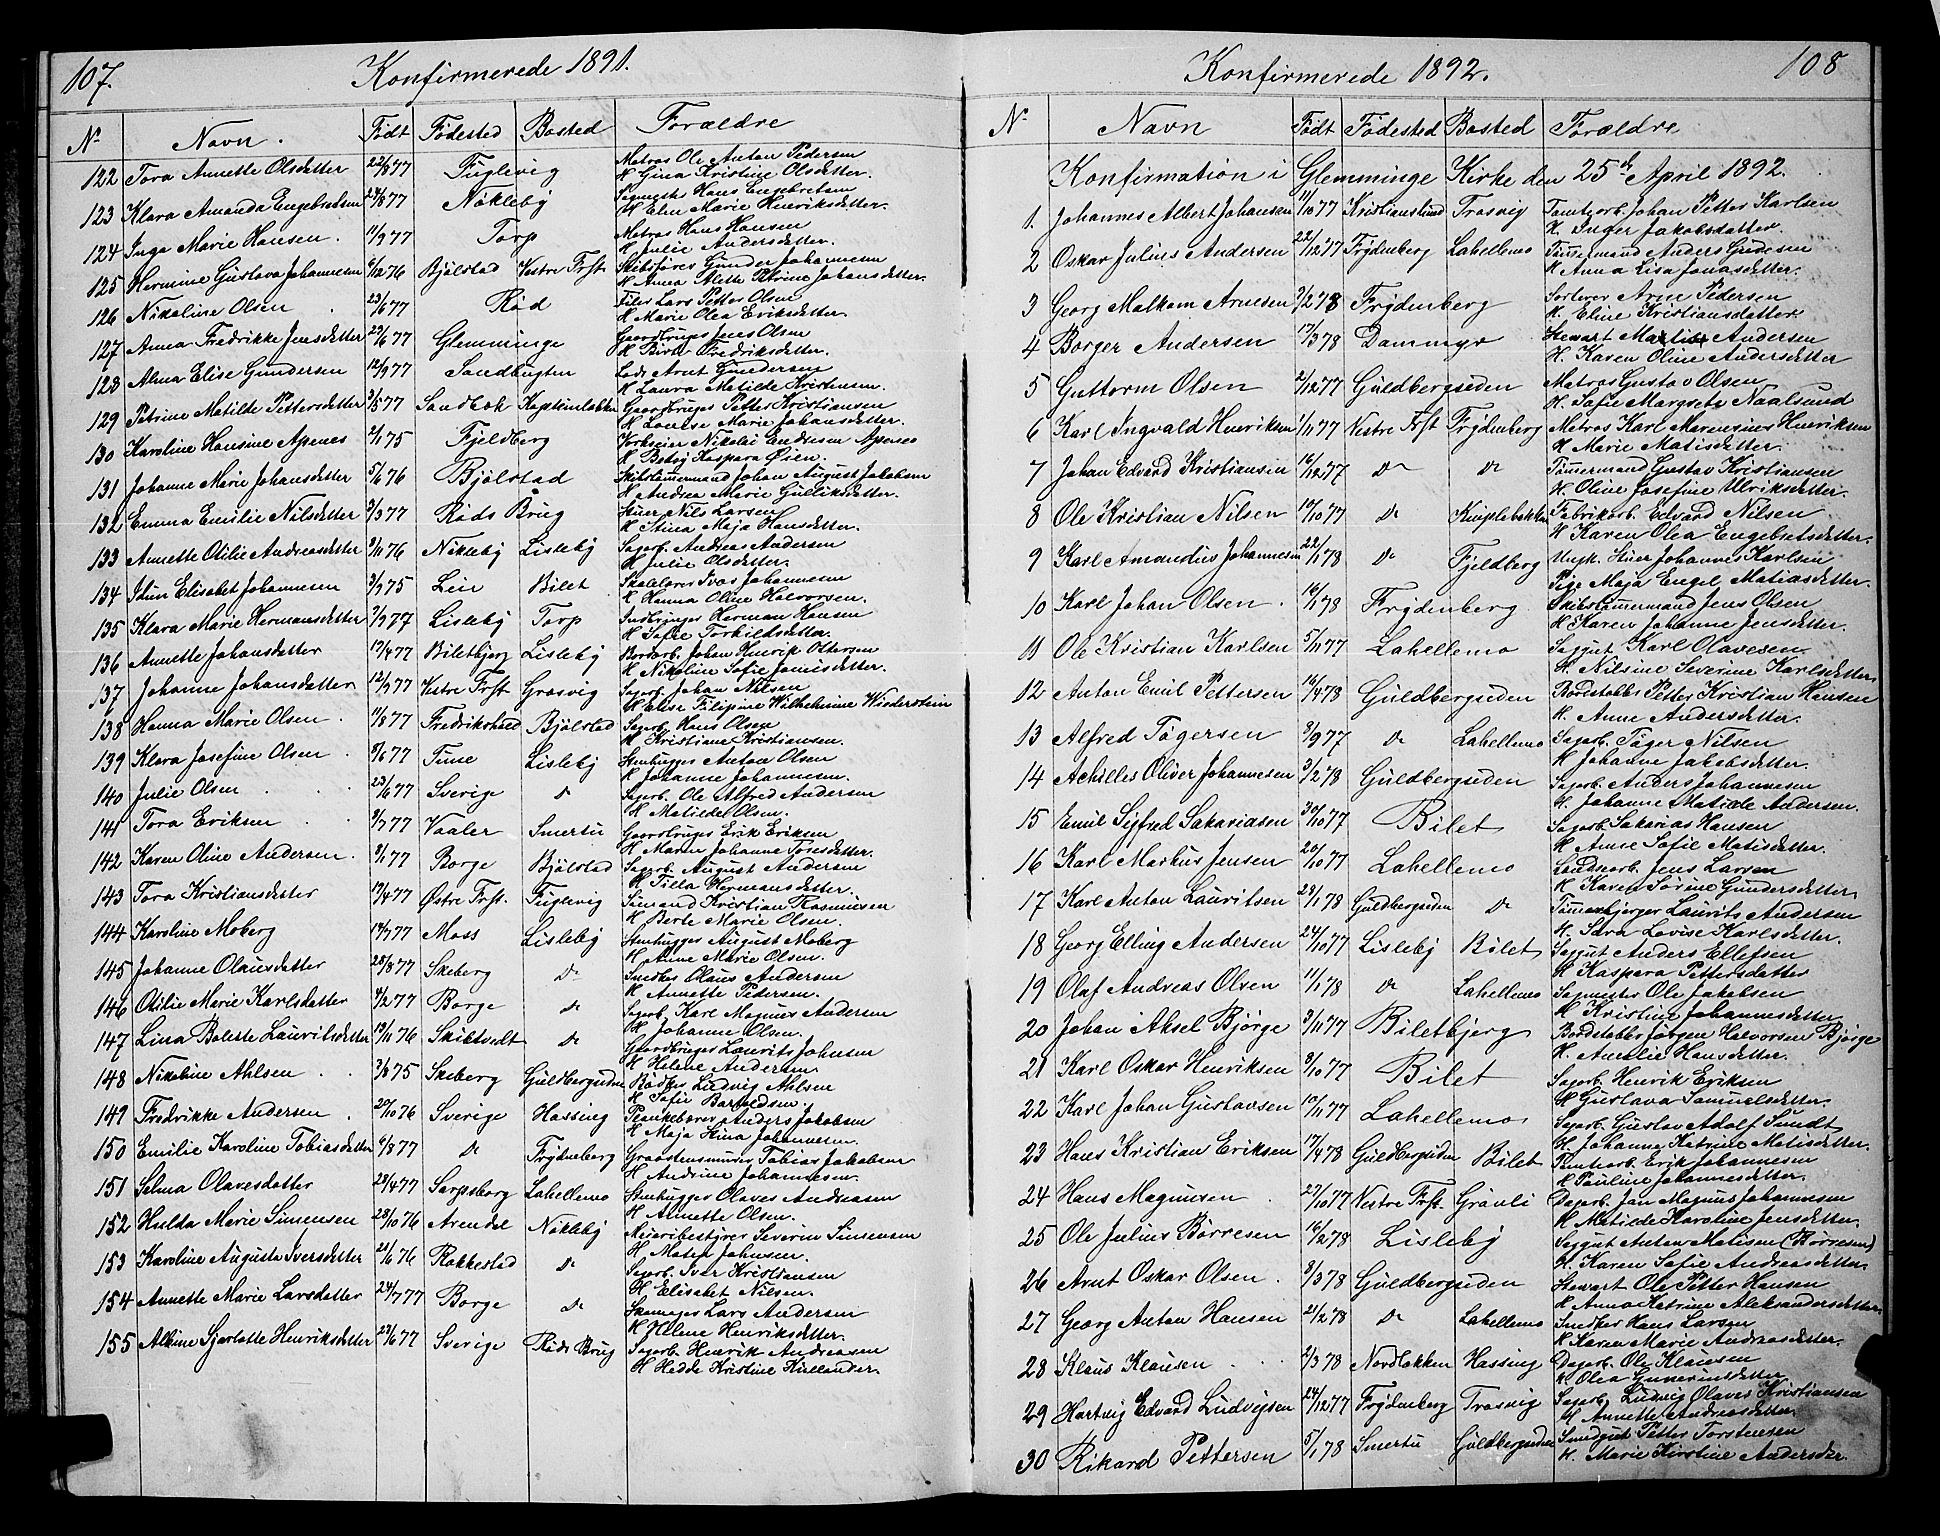 107.
Konfirmerede 1891.
No Navn. Født Fødested Bosted Forældre
122 Tora Annette Olsdatter 22/8 77 Fuglevig Matros Ole Anton Pedersen
H Gina Kristine Olsdetter.
123 Klara Amanda Engebretsen 24/8 77 Nøkleby Hans Engebretsen
H Elen Marie Henriksdetter.
124 Inga Marie Hansen. 11/9 77 Torp Matros Hans Hansen
H Julie Andersdetter.
125 Hermine Gustava Johannesen 6/12 76 Bjølstad Vestre Frst Skibsfører Gunder Johannesen
H Anna Alette Petrine Johansdetter.
126 Nikoline Olsen 23/6 77 Rød Filer Lars Petter Olsen
H Marie Olea Eriksdetter.
127 Anna Fredrikke Jensdetter 23/6 77 Glemminge Gaardbruger Jens Olsen
H Berte Fredriksdetter.
128 Alma Elise Gundersen 12/9 77 Sandbugten Lods Arnt Gundersen
H Laura Matilde Kristensen.
129 Petrine Matilde Pettersdetter 3/5 77 Sandbæk Kapteinløkken Gaardbruger Petter Kristiansen
H Lovise Marie Johansdetter.
130 Karoline Hansine Apenes 2/1 75 Fjeldberg Nikolai Endresen Apenes
H Betsy Kaspara Øien.
131 Johanne Marie Johansdetter 5/6 76 Bjølstad Skibstømmermand Johan August Jakobsen
H Andrea Marie Gulliksdetter.
132 Emma Emilie Nilsdetter 3/3 77 Røds Brug Stuer Nils Larsen
H Stina Maja Hansdetter.
133 Annette Otilie Andreasdetter 8/11 76 Nøkleby Lisleby Sagarb. Andreas Andersen
H Julie Olsdetter.
134 Elisabet Johannesen 3/9 75 Leie Bilet Skolelærer Ivar Johannesen
H Hanna Oline Halvorsen.
135 Klara Marie Hermansdetter 7/9 77 Lisleby Torp Indbringer Herman Hansen
H Sofie Torkildsdetter.
136 Annette Johansdetter 17/4 77 Biletbjerg Lisleby Bordarb. Johan Henrik Ottersen
H Nikoline Sofie Jonisdetter.
137 Johanne Johansdetter 12/9 77 Vestre Frst Gresvig Sagarb. Johan Nilsen
H Elise Filipine Vilhelmine Wiederstein
138 Hanna Marie Olsen. 11/8 77 Fredrikshald Bjølstad Sagarb. Hans Olsen
H Kristiane Kristiansen.
139 Klara Josefine Olsen. 8/6 77 Tune Lisleby Stenhugger Anton Olsen
H Johanne Johannesen.
140 Julie Olsen 23/6 77 Sverige do Sagarb. Ole Alfred Andersen
H Matilde Olsen.
141 Tora Eriksen 9/7 77 Vaaler Smertu Gaardbruger Erik Eriksen
H Maren Johanne Tonesdetter.
142 Karen Oline Andersen. 8/1 77 Borge Bjølstad Sagarb. August Andersen
H Tilla Hermansdetter.
143 Tora Kristiansdetter 17/4 77 Østre Frst. Fuglevig Sømand Kristian Rasmussen
H Berte Marie Olsen.
144 Karoline Moberg 17/7 77 Moss Lisleby Stenhugger August Moberg
H Anne Marie Olsen.
145 Johanne Olausdetter 28/8 77 Skeberg do Snedker Olaus Andersen
H Annette Pedersen.
146 Otilie Marie Karlsdetter 4/2 77 Borge do Sagarb. Karl Magnus Andersen
H Johanne Olsen.
147 Lina Bolette Lauritsdetter 19/11 76 Skiktvedt do Gaardbruger Laurits Johnsen
H Helene Andersen.
148 Nikoline Ahlsen 3/8 75 Skeberg Guldbergsiden Bødker Ludvig Ahlsen
H Sofie Bartoldsen.
149 Fredrikke Andersen 20/10 76 Sverige Hassing Plankebærer Anders Jakobsen
H Maja Stina Johannesen.
150 Emilie Karoline Tobiasdetter 6/8 77 do Frydenberg Graastensmurer Tobias Jakobsen
H Andrine Johannesen.
151 Selma Olavesdatter 29/4 77 Sarpsborg Lahellemo Stenhugger Olaves Andreasen
H Annette Olsen.
152 Hulda Marie Simensen 28/10 76 Arendal Nøkleby Meieribestyrer Severin Simensen
H Maten Johnsen.
153 Karoline Augusta Iversdetter 21/6 76 Rakkestad do Sagarb. Iver Kristiansen
H Elisabet Nilsen.
154 Annette Marie Larsdetter 24/7 77 Borge do Skomager Lars Andersen
H Helene Henriksdetter.
155 Albine Sjarlotte Henriksdetter 23/6 77 Sverige Røds Brug Sagarb. Henrik Andreasen
H Hedde Kristine Kullander.
Konfirmerede 1892.
108
No Navn Født Fødested Bosted Forældre
Konfirmation i Glemminge Kirke den 25de April 1892.
1. Johannes Albert Johansen 11/10 77 Kristianslund Trosvig Tomtearb. Johan Petter Karlsen
H. Inger Jakobsdatter
2 Oskar Julius Andersen 22/12 77 Frydenberg Lahellemo Tømmermand Anders Gudesen
H Anna Lisa Jonasdetter.
3 Georg Malkom Arnesen 9/2 78 Frydenberg Sorterer Arne Pedersen
H. Eline Kristiansdetter
4 Borger Andersen 17/3 78 Dammyr Stewart Martin Andersen
H. Karen Oline Andersdetter
5 Guttorm Olsen 2/12 77 Guldbergsiden Matros Gustav Olsen
H. Sofie Margrete Naalsund
6 Karl Ingvald Henriksen 1/11 77 Vestre Frst Frydenberg Matros Karl Marenius Henriksen
H Marie Matisdetter.
7 Johan Edvard Kristiansen 16/12 77 do do Tømmermand Gustav Kristiansen
H. Oline Josefine Ulriksdetter.
8 Ole Kristian Nilsen 19/10 77 do Kiplebakken Fabrikarb. Edvard Nilsen
H Karen Olea Engebretsdetter.
9 Karl Amandus Johannesen 22/1 78 do Fjeldberg Ungk. Stuer Johannes Karlsen
Pige Maja Engel Matiasdetter.
10 Karl Johan Olsen. 16/1 78 Frydenberg. Skibstømmermand Jens Olsen
H Karen Johanne Jensdetter.
11 Ole Kristian Karlsen 5/11 77 Lahellemo Saggut Karl Olavesen
H Nilsine Severine Karlsdetter.
12 Anton Emil Pettersen 16/4 78 Guldbergsiden Bordstabler Petter Kristian Hansen
H. Anne Andersdetter.
13 Alfred Tøgersen 8/9 77 do Lahellemo Sagarb. Tøger Nilsen
H Johanne Jakobsdetter.
14 Achilles Oliver Johannesen 3/2 78 Guldbergsiden Sagarb. Anders Johannesen
H. Johanne Matilde Andersen.
15 Emil Sigfred Sakariasen 30/10 77 Bilet Sagarb. Sakarias Hansen
H Anne Sofie Matisdetter.
16 Karl Markus Jensen 20/10 77 Lahellemo Landsearb. Jens Larsen
H Karen Sørine Gundersdetter.
17 Karl Anton Lauritsen 29/1 78 Guldbergsiden do Tømmerbjerger Laurits Andersen
H. Sara Lovise Karlsdetter.
18 Georg Elling Andersen 24/10 77 Lisleby Bilet Saggut Anders Ellefsen
H Kaspara Pettersdetter
19 Olaf Andreas Olsen 11/1 78 do Lahellemo Sagmester Ole Jakobsen
H Kristine Johannesdetter
20 Johan Aksel Bjørge 3/11 77 Biletbjerg Bordstabler Jørgen Halvorsen Bjørge
H. Aurelie Hansdetter.
21 Karl Oskar Henriksen 8/10 77 Bilet Sagarb. Henrik Eriksen
H Gustava Samuelsdetter
22 Karl Johan Gustavsen 19/11 77 Lahellemo Sagarb. Gustav Adolf Sundt
H. Johanne Katrine Matisdetter.
23 Hans Kristian Eriksen 17/4 78 Guldbergsiden Bilet Tomtearb. Erik Johannesen
H Pauline Johannesdetter.
24 Hans Magnussen 27/10 77 Vestre Frst. Graali Dagarb. Jan Magnus Johannesen
H Matilde Karoline Jensdetter.
25 Ole Julius Børresen 16/2 78 Lisleby Saggut Anton Matisen (Børresen)
H. Karen Sofie Andreasdetter.
26 Arnt Oskar Olsen. 8/3 78 Guldbergsiden Stewart Ole Petter Hansen
H Anna Katrine Aleksandersdetter
27 Georg Anton Hansen 21/2 78 do Lahellemo Snedker Hans Larsen
H Karen Marie Andreasdetter.
28 Klaus Klausen 2/3 78 Nordløkken Hassing Dagarb. Ole Klausen
H Olea Gunneriusdetter
29 Hartvig Edvard Ludvigsen 24/12 77 Frydenberg Trosvig Sagarb. Ludvig Olaves Kristiansen
H Annette Andreasdetter.
30 Rikard Pettersen 5/1 78 Smertu Guldbergsiden Petter Torstensen
H. Marie Kirstine Andersdtr.